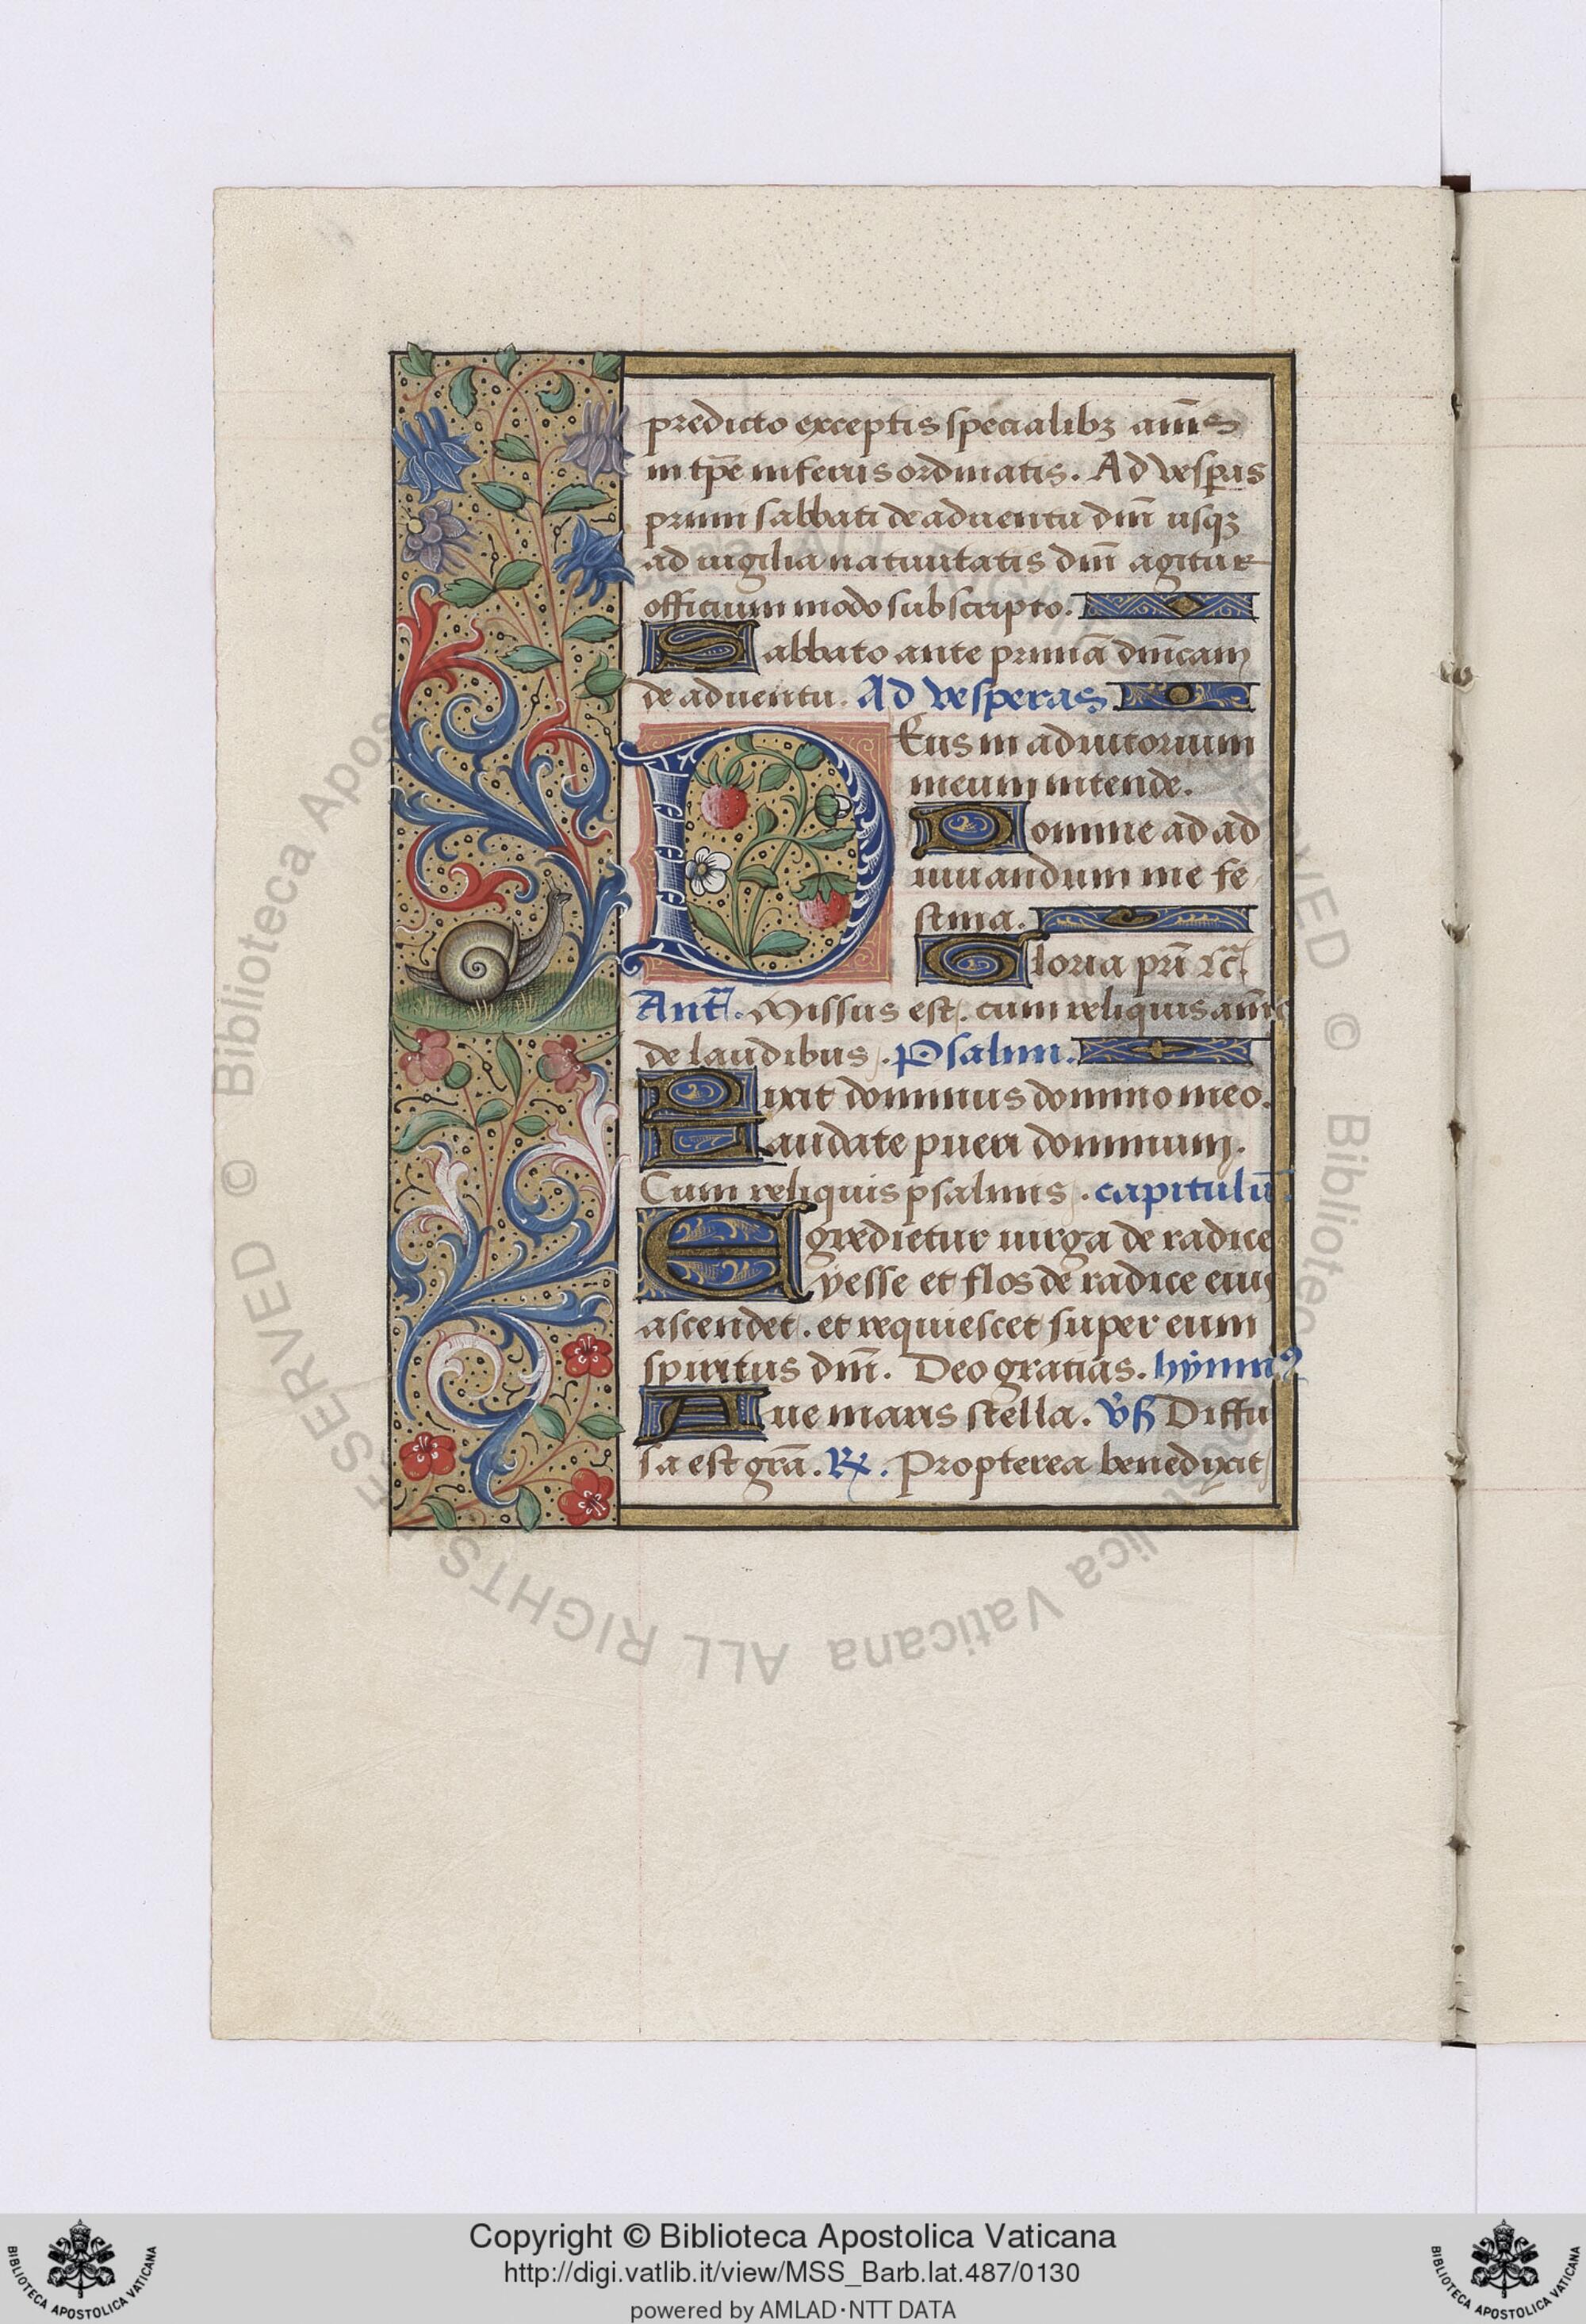 predicto exceptis specialibꝫ an̄is
in tp̄e inferius ordinatis. Ad vesp̄as
primi sabbati de aduentu dn̄i usqꝫ
ad uigilia natiuitatis dn̄i agitur
officium modo subscripto.
Sabbato ante primā dn̄icam
de aduentu. Ad vesperas
DEus in adiutorium
meum intende.
Domine ad ad
iuuandum me fe
stina.
Gloria pr̄i ⁊c̄.
Ant̄. Missus est. cum reliquis an̄is
de laudibus. Psalmi.
Dixit dominus domino meo.
Laudate pueri dominum.
Cum reliquis psalmis. capitulū.
Egredietur uirga de radice
yesse et flos de radice eius
ascendet. et requiescet super eum
spiritus dn̄i. Deo gratias. hymnꝰ
Aue maris stella. v̄s Diffu
sa est gr̄a. ℞. Propterea benedixit
© Biblioteca Apostolica Vaticana ALL RIGHTS RESERVED © Biblioteca Apos
Copyright © Biblioteca Apostolica Vaticana
http://digi.vatlib.it/view/MSS_Barb.lat.487/0130
powered by AMLAD·NTT DATA
BIBLIOTECA APOSTOLICA VATICANA
BIBLIOTECA APOSTOLICA VATICANA